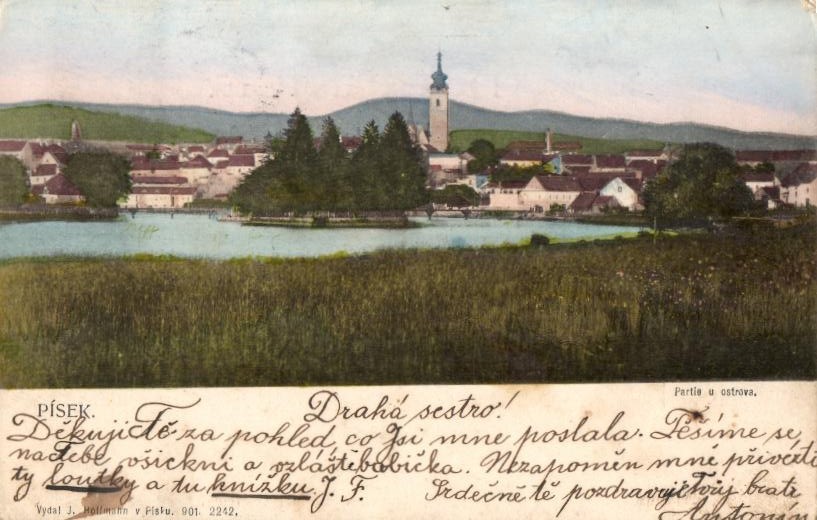 Partie u ostrova.
PÍSEK.
Drahá sestro!
Děkuji Tě za pohled, co Jsi mne poslala. Těšíme se
na tebe všickni a ozláště babička. Nezapoměn mné přivézti
ty loutky a tu knížku J. F. Srdečně tě pozdravuje Tvůj bratr
Antonín
Vydal J. Hoffmann v Písku. 901. 2242.